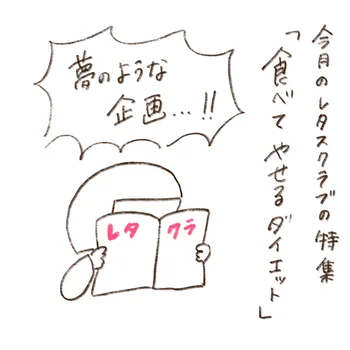 今月のレタスクラブの特集
「食べてやせるダイエット」
夢のような
企画…!!
レタ
クラ